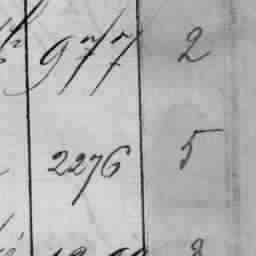 977 2
2276 5